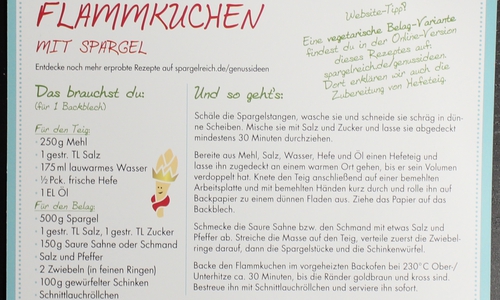 FLAMMKUCHEN
MIT SPARGEL
Entdecke noch mehr erprobte Rezepte auf spargelreich.de/genussideen
Website-Tipp?
Eine vegetarische Belag-Variante
findest du in der Online-Version
dieses Rezeptes auf:
spargelreich.de/genussideen.
Dort erklären wir auch die
Zubereitung von Hefeteig.
Das brauchst du:
(für 1 Backblech)
Für den Teig:
· 250 g Mehl
· 1 gestr. TL Salz
· 175 ml lauwarmes Wasser
· ½ Pck. frische Hefe
· 1 EL Öl
Für den Belag:
· 500 g Spargel
· 1 gestr. TL Salz, 1 gestr. TL Zucker
· 150 g Saure Sahne oder Schmand
· Salz und Pfeffer
· 2 Zwiebeln (in feinen Ringen)
· 100 g gewürfelter Schinken
· Schnittlauchröllchen
Und so geht's:
Schäle die Spargelstangen, wasche sie und schneide sie schräg in dün-
ne Scheiben. Mische sie mit Salz und Zucker und lasse sie abgedeckt
mindestens 30 Minuten durchziehen.
Bereite aus Mehl, Salz, Wasser, Hefe und Öl einen Hefeteig und
lasse ihn zugedeckt an einem warmen Ort gehen, bis er sein Volumen
verdoppelt hat. Knete den Teig anschließend auf einer bemehlten
Arbeitsplatte und mit bemehlten Händen kurz durch und rolle ihn auf
Backpapier zu einem dünnen Fladen aus. Ziehe das Papier auf das
Backblech.
Schmecke die Saure Sahne bzw. den Schmand mit etwas Salz und
Pfeffer ab. Streiche die Masse auf den Teig, verteile zuerst die Zwiebel-
ringe darauf, dann die Spargelstücke und die Schinkenwürfel.
Backe den Flammkuchen im vorgeheizten Backofen bei 230°C Ober-/
Unterhitze ca. 30 Minuten, bis die Ränder goldbraun und kross sind.
Bestreue ihn mit Schnittlauchröllchen und serviere ihn sofort.